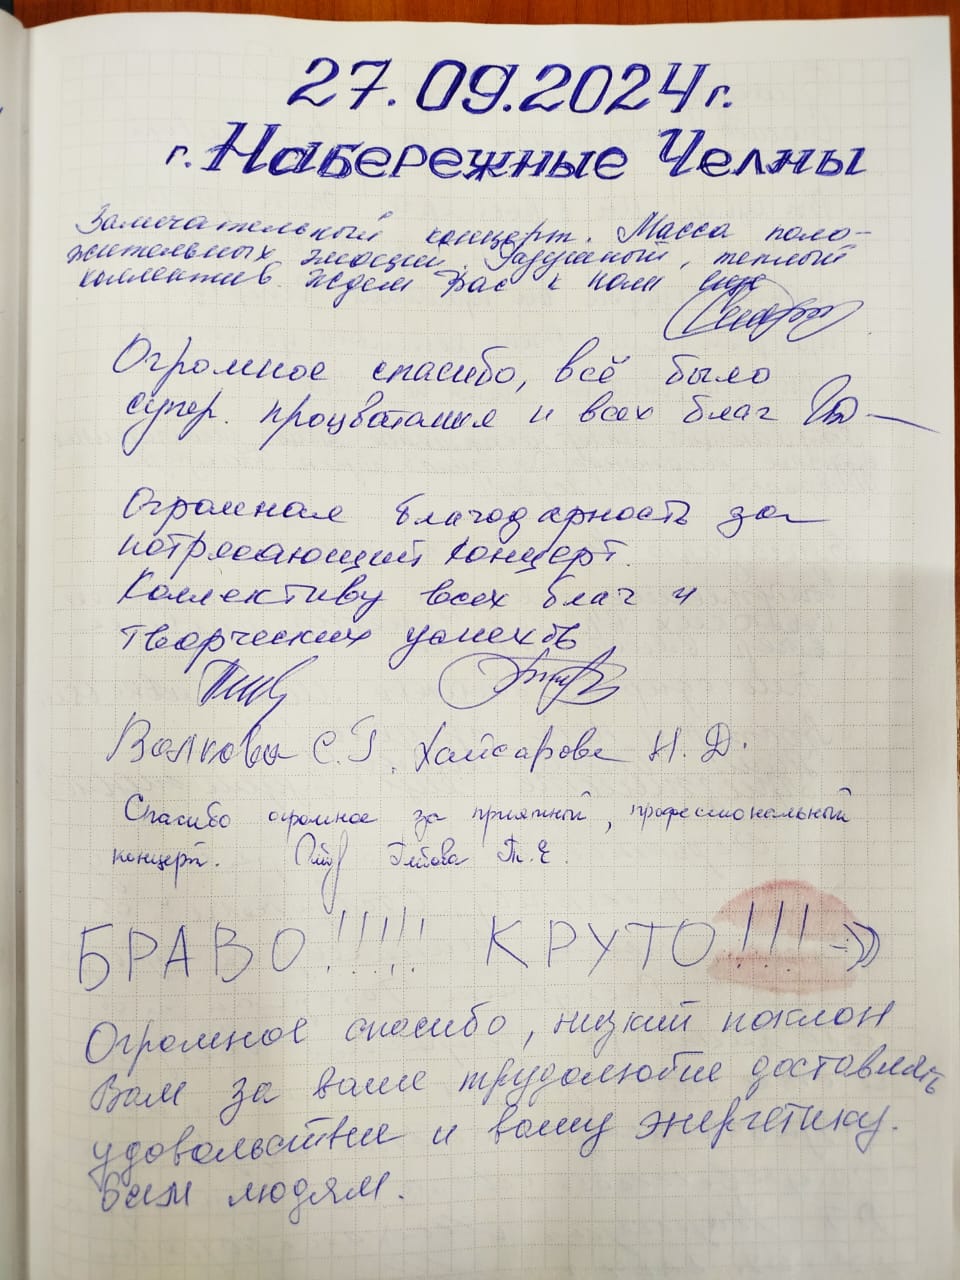 27.09.2024 г.
г. Набережные Челны
Замечательный концерт. Масса поло-
жительных эмоций. Радушный, теплый
коллектив. Ждем Вас к нам еще
Огромное спасибо, всё было
супер. процветания и всех благ
Огромная благодарность за
потрясающий концерт.
Коллективу всех благ и
творческих успехов
Волкова С.Г. Хайсарова Н.Д.
Спасибо огромное за приятный, профессиональный
концерт. Глебова Т.Е.
БРАВО!!!!! КРУТО!!! -))
Огромное спасибо, низкий поклон
Вам за ваше трудолюбие доставлять
удовольствие и вашу энергетику.
людям.